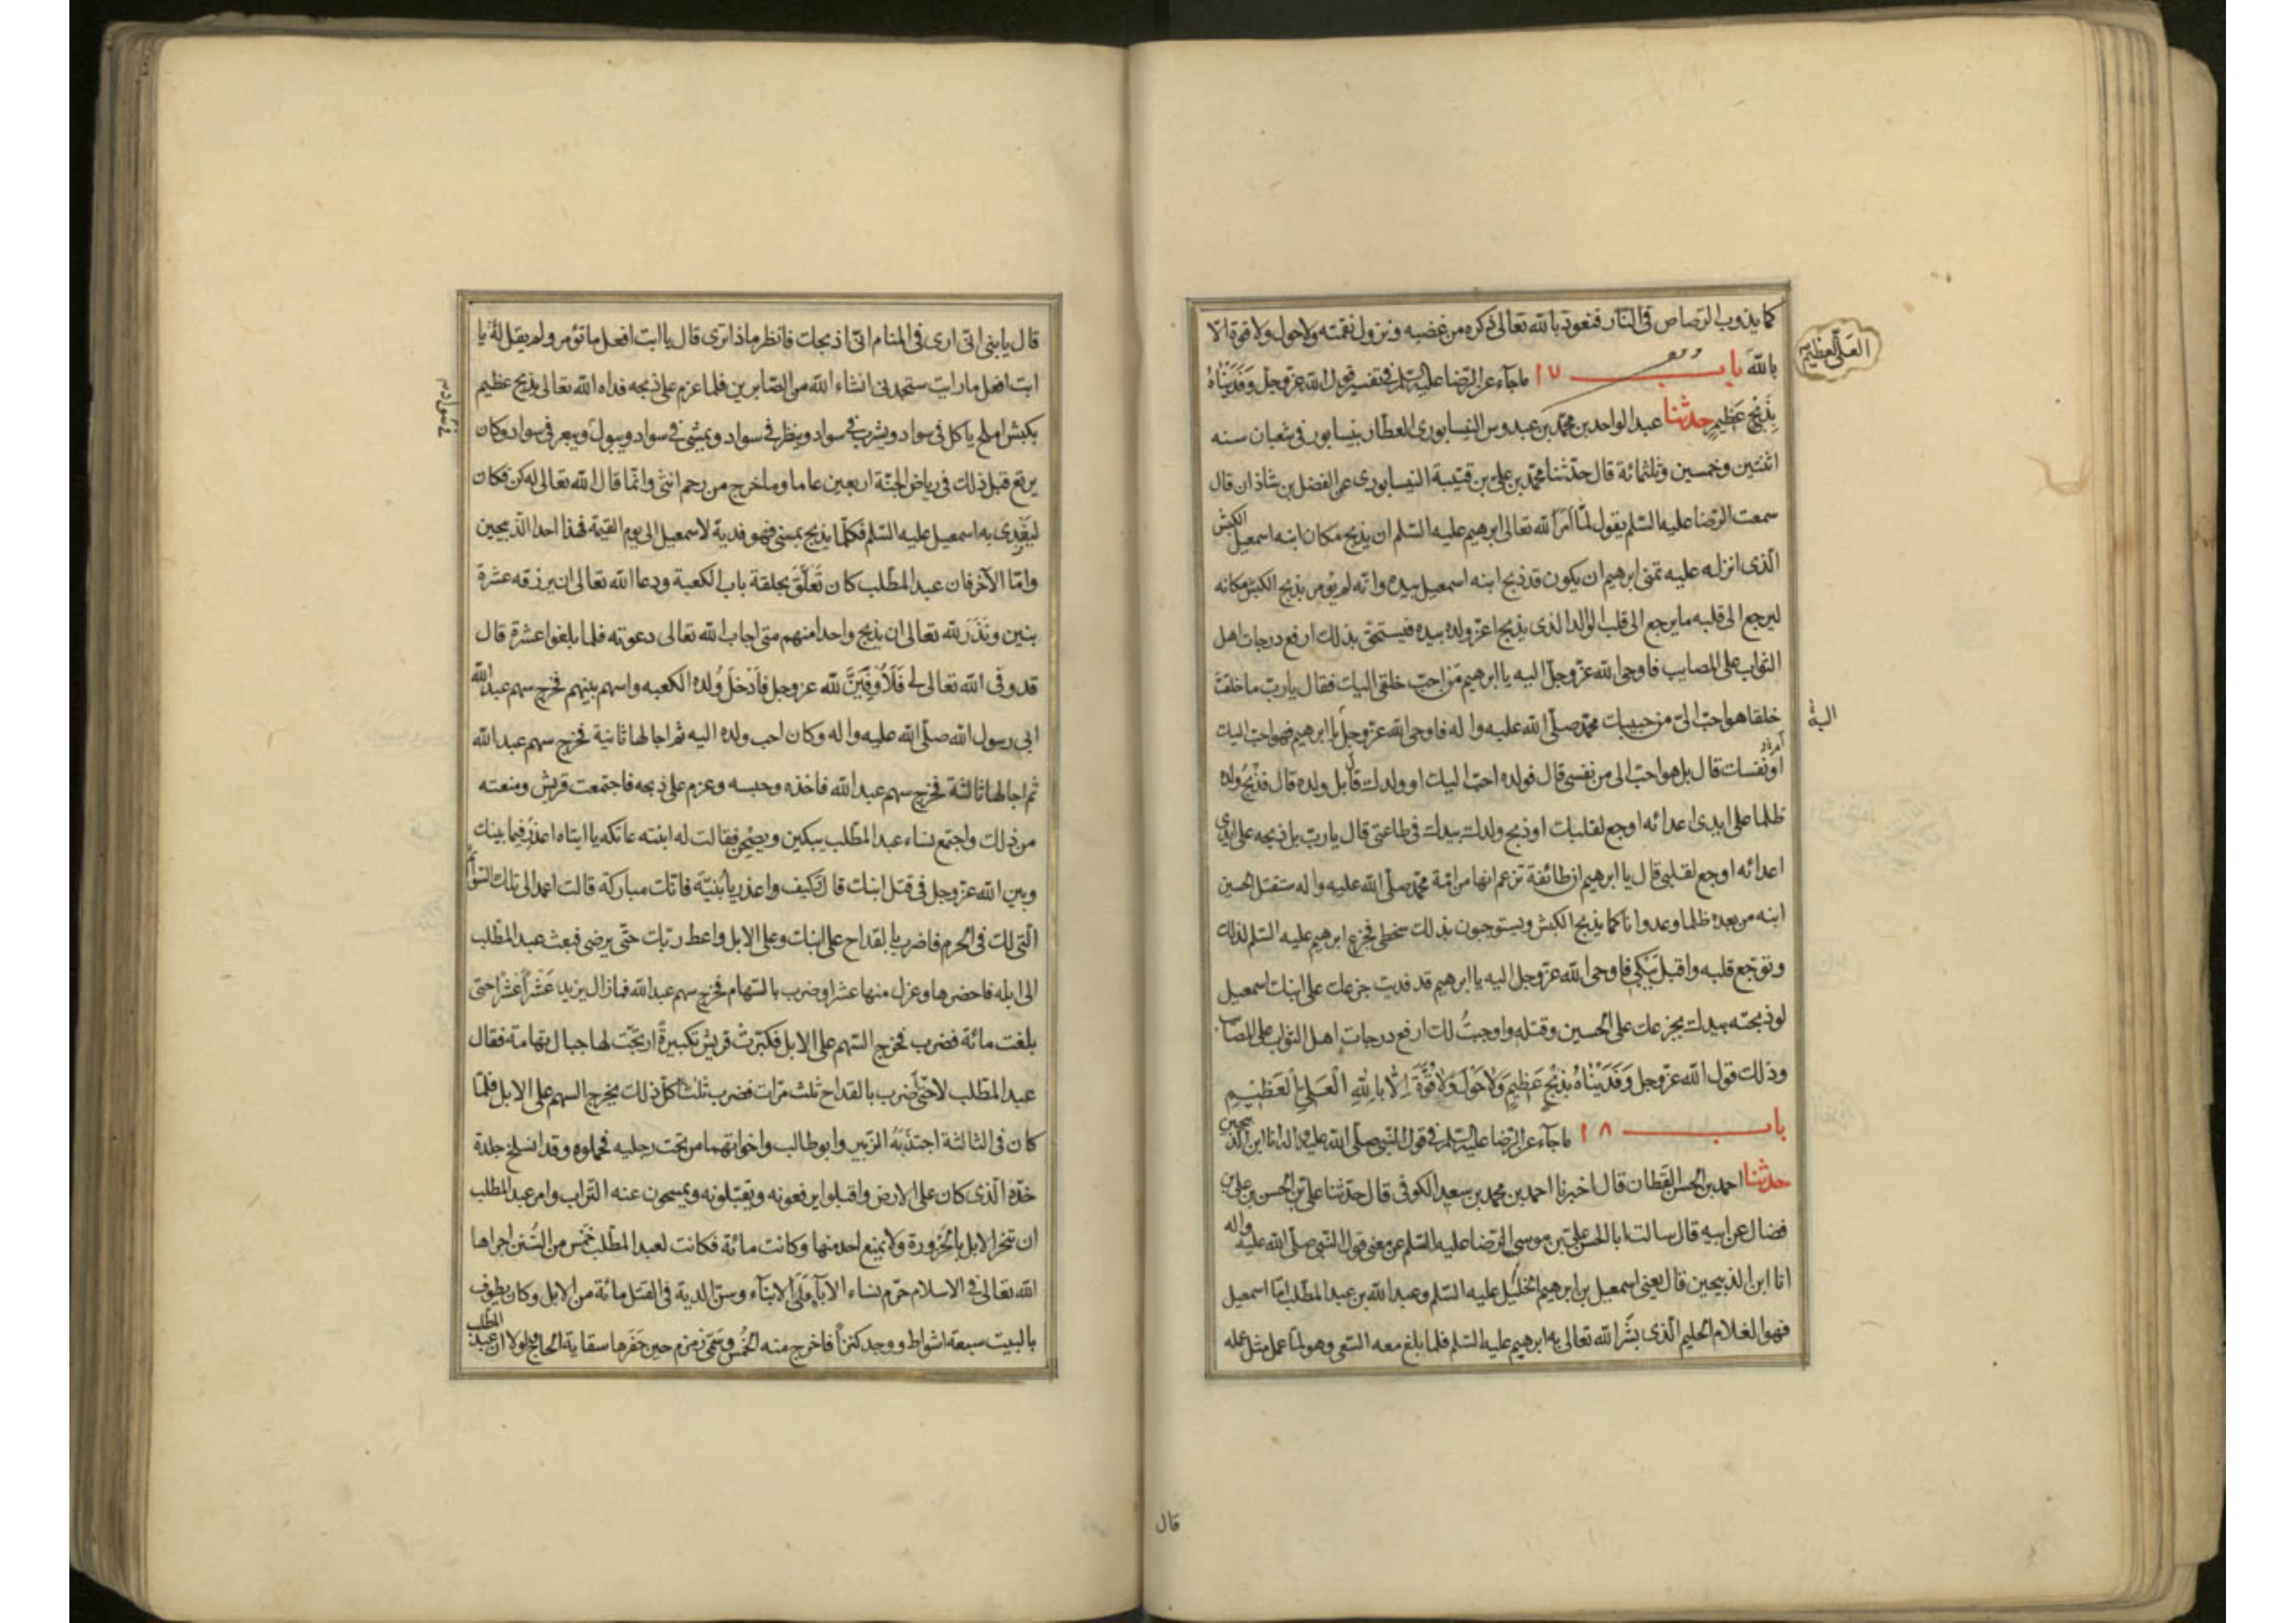 كما يذوب الرصاص فى النار فنعوذ بالله تعالى ذكره من غضبه ونزول نقمته ولا حول ولا قوة الا
العلى العظيم
بالله باب ١٧ ما جآء عن الرضا عليه السلم فى تفسير قول الله عز وجل وَفَدَيْنَاهُ
بِذِبْحٍ عَظِيمٍ حدثنا عبد الواحد بن محمد بن عبدوس النيسابورى العطار بنيسابور فى شعبان سنه
اثنتين وخمسين وثلثمائة قال حدّثنا محمد بن على بن قتيبة النيسابورى عن الفضل بن شاذان قال
سمعت الرضا عليه السلم يقول لمّا اَمَرَ الله تعالى ابرهيم عليه السلم ان يذبح مكان ابنه اسمعيل الكبش
الّذى انزله عليه تمنى ابرهيم ان يكون قد ذبح ابنه اسمعيل بيده وانّه لم يؤمر بذبح الكبش مكانه
ليرجع الى قلبه ما يرجع الى قلب الوالد الذى يذبح اعزّ ولده بيده فيستحق بذلك ارفع درجات اهل
الثواب على المصايب فاوحى الله عزّ وجلّ اليه يا ابرهيم مَن احبّ خلقى اليك فقال يا ربّ ما خلقت
خلقا هو احبّ الىّ من حبيبك محمّد صلّى الله عليه واله فاوحى الله عزّ وجلّ يا ابرهيم فهو احبّ اليك
اليه
او نفسك قال بل هو احبّ الى من نفسى قال فولده احبّ اليك او ولدك قال بل ولده قال فذبح ولده
ظلما على ايدى اعدائه اوجع لقلبك او ذبح ولدك بيدك فى طاعتى قال يا ربّ بل ذبحه على ايدى
اعدائه اوجع لقلبى قال يا ابرهيم ان طائفة تزعم انها من امّة محمّد صلّى الله عليه واله ستقتل الحسين
ابنه من بعده ظلما وعدوانا كما يذبح الكبش ويستوجبون بذلك سخطى فجزع ابرهيم عليه السّلم لذلك
وتوجّع قلبه واقبل يَبْكِى فاوحى الله عزّ وجلّ اليه يا ابرهيم قد فديت جزعك على ابنك اسمعيل
لو ذبحته بيدك بجزعك على الحسين وقتله واوجبتُ لك ارفع درجات اهل الثواب على المصايب
وذلك قول الله عزّ وجلّ وَفَدَيْنَاهُ بِذِبْحٍ عَظِيمٍ وَلَا حَوْلَ وَلَا قُوَّةَ اِلَّا بِاللهِ الْعَلِىِّ الْعَظِيمِ
باب ١٨ ما جآء عن الرضا عليه السلم فى قول النبى صلّى الله عليه واله انا ابن الذبيحين
حدثنا احمد بن الحسن القَطّان قال اخبرنا احمد بن محمد بن سعيد الكوفى قال حدّثنا على بن الحسن بن على بن
فضال عن ابيه قال سالت ابا الحسن على بن موسى الرضا عليه السّلم عن معنى قول النّبى صلّى الله عليه واله
انا ابن الذبيحين قال يعنى اسمعيل بن ابرهيم الخليل عليه السّلم وعبد الله بن عبد المطلب امّا اسمعيل
فهو الغلام الحليم الّذى بشّر الله تعالى به ابرهيم عليه السّلم فلما بلغ معه السّعى وهو لمّا عمل مثل عمله
قال
قال يا بنى انّى ارى فى المنام انّى اذبحك فانظر ماذا ترى قال يا ابت افعل ما تؤمر ولم يقل لَهُ يا
ابت افعل ما رايت ستجدنى انشاء الله من الصّابرين فلما عزم على ذبحه فداه الله تعالى بذبح عظيم
بكبش املح ياكل فى سواد ويشرب فى سواد وينظر فى سواد ويمشى فى سواد ويبول ويبعر فى سواد وكان
يرتع قبل ذلك فى رياض الجنّة اربعين عاما وما خرج من رحم انثى وانّما قال الله تعالى له كن فكان
ليَفْدى به اسمعيل عليه السّلم فكلّما يذبح بمنى فهو فدية لاسمعيل الى يوم القيمة فهذا احد الذّبيحين
وامّا الآخر فان عبد المطّلب كان تَعَلَّقَ بحلقة باب الكعبة ودعا الله تعالى ان يرزقه عشرة
بنين ونَذَرَ لله تعالى ان يذبح واحدا منهم متى اجاب الله تعالى دعوته فلما بلغوا عشرة قال
قد وفى الله تعالى لى فَلَاُوفِيَنَّ لله عز وجل فاَدْخَلَ وُلده الكعبه واسهم بينهم فخرج سهم عبد الله
ابى رسول الله صلّى الله عليه واله وكان احب ولده اليه ثم اجالها ثانية فخرج سهم عبد الله
ثم اجالها ثالثة فخرج سهم عبد الله فاخذه وحبسه وعزم على ذبحه فاجتمعت قريش ومنعته
من ذلك واجتمع نساء عبد المطّلب يبكين ويصحن فقالت له ابنته عاتكه يا ابتاه اعذر فيما بينك
وبين الله عزّ وجل فى قتل ابنك قال وكيف واعذر يا بُنيّة فانّك مباركة قالت اعمد الى تلك السّوائم
الّتى لك فى الحرم فاضرب بالقداح على ابنك وعلى الابل واعط ربّك حتّى يرضى فبعث عبد المطّلب
الى ابله فاحضرها وعزل منها عشرا وضرب بالسّهام فخرج سهم عبد الله فما زال يزيد عَشْراً عَشْراً حتى
بلغت مائة فضرب فخرج السّهم على الابل فكبّرتْ قريش تكبيرةً ارتجّت لها جبال تهامة فقال
عبد المطّلب لا حتّى اَضرب بالقداح ثلث مرّات فضرب ثلثا كلّ ذلك يخرج السهم على الابل فلمّا
كان فى الثالثة اجتذبَهُ الزّبير وابو طالب واخوانهما من تحت رجليه فحملوه وقد انسلخ جلدة
خدّه الّذى كان على الارض واقبلوا يرفعونه ويقبّلونه ويمسحون عنه التراب وامر عبد المطلب
ان تنحر الابل بالحَزورة ولا يمنع احد منها وكانت مائة فكانت لعبد المطّلب خَمْس من السُّنن اجراها
الله تعالى فى الاسلام حرّم نساء الآبآء على الابنآء وسنّ الدية فى القتل مائة من الابل وكان يطوف
بالبيت سبعة اشواط ووجد كنزاً فاخرج منه الخُمُس وسَمّى زمزم حين حَفَرها سقاية الحاج ولولا ان عبد المطّلب